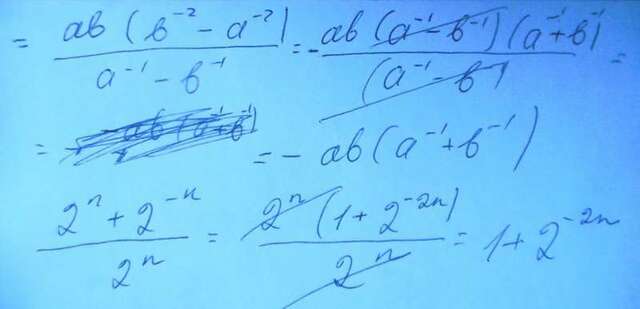 = ab(b⁻² - a⁻²) / (a⁻¹ - b⁻¹) = - ab(a⁻¹ - b⁻¹)(a⁻¹ + b⁻¹) / (a⁻¹ - b⁻¹) =
= = - ab(a⁻¹ + b⁻¹)
(2ⁿ + 2⁻ⁿ) / 2ⁿ = 2ⁿ(1 + 2⁻²ⁿ) / 2ⁿ = 1 + 2⁻²ⁿ